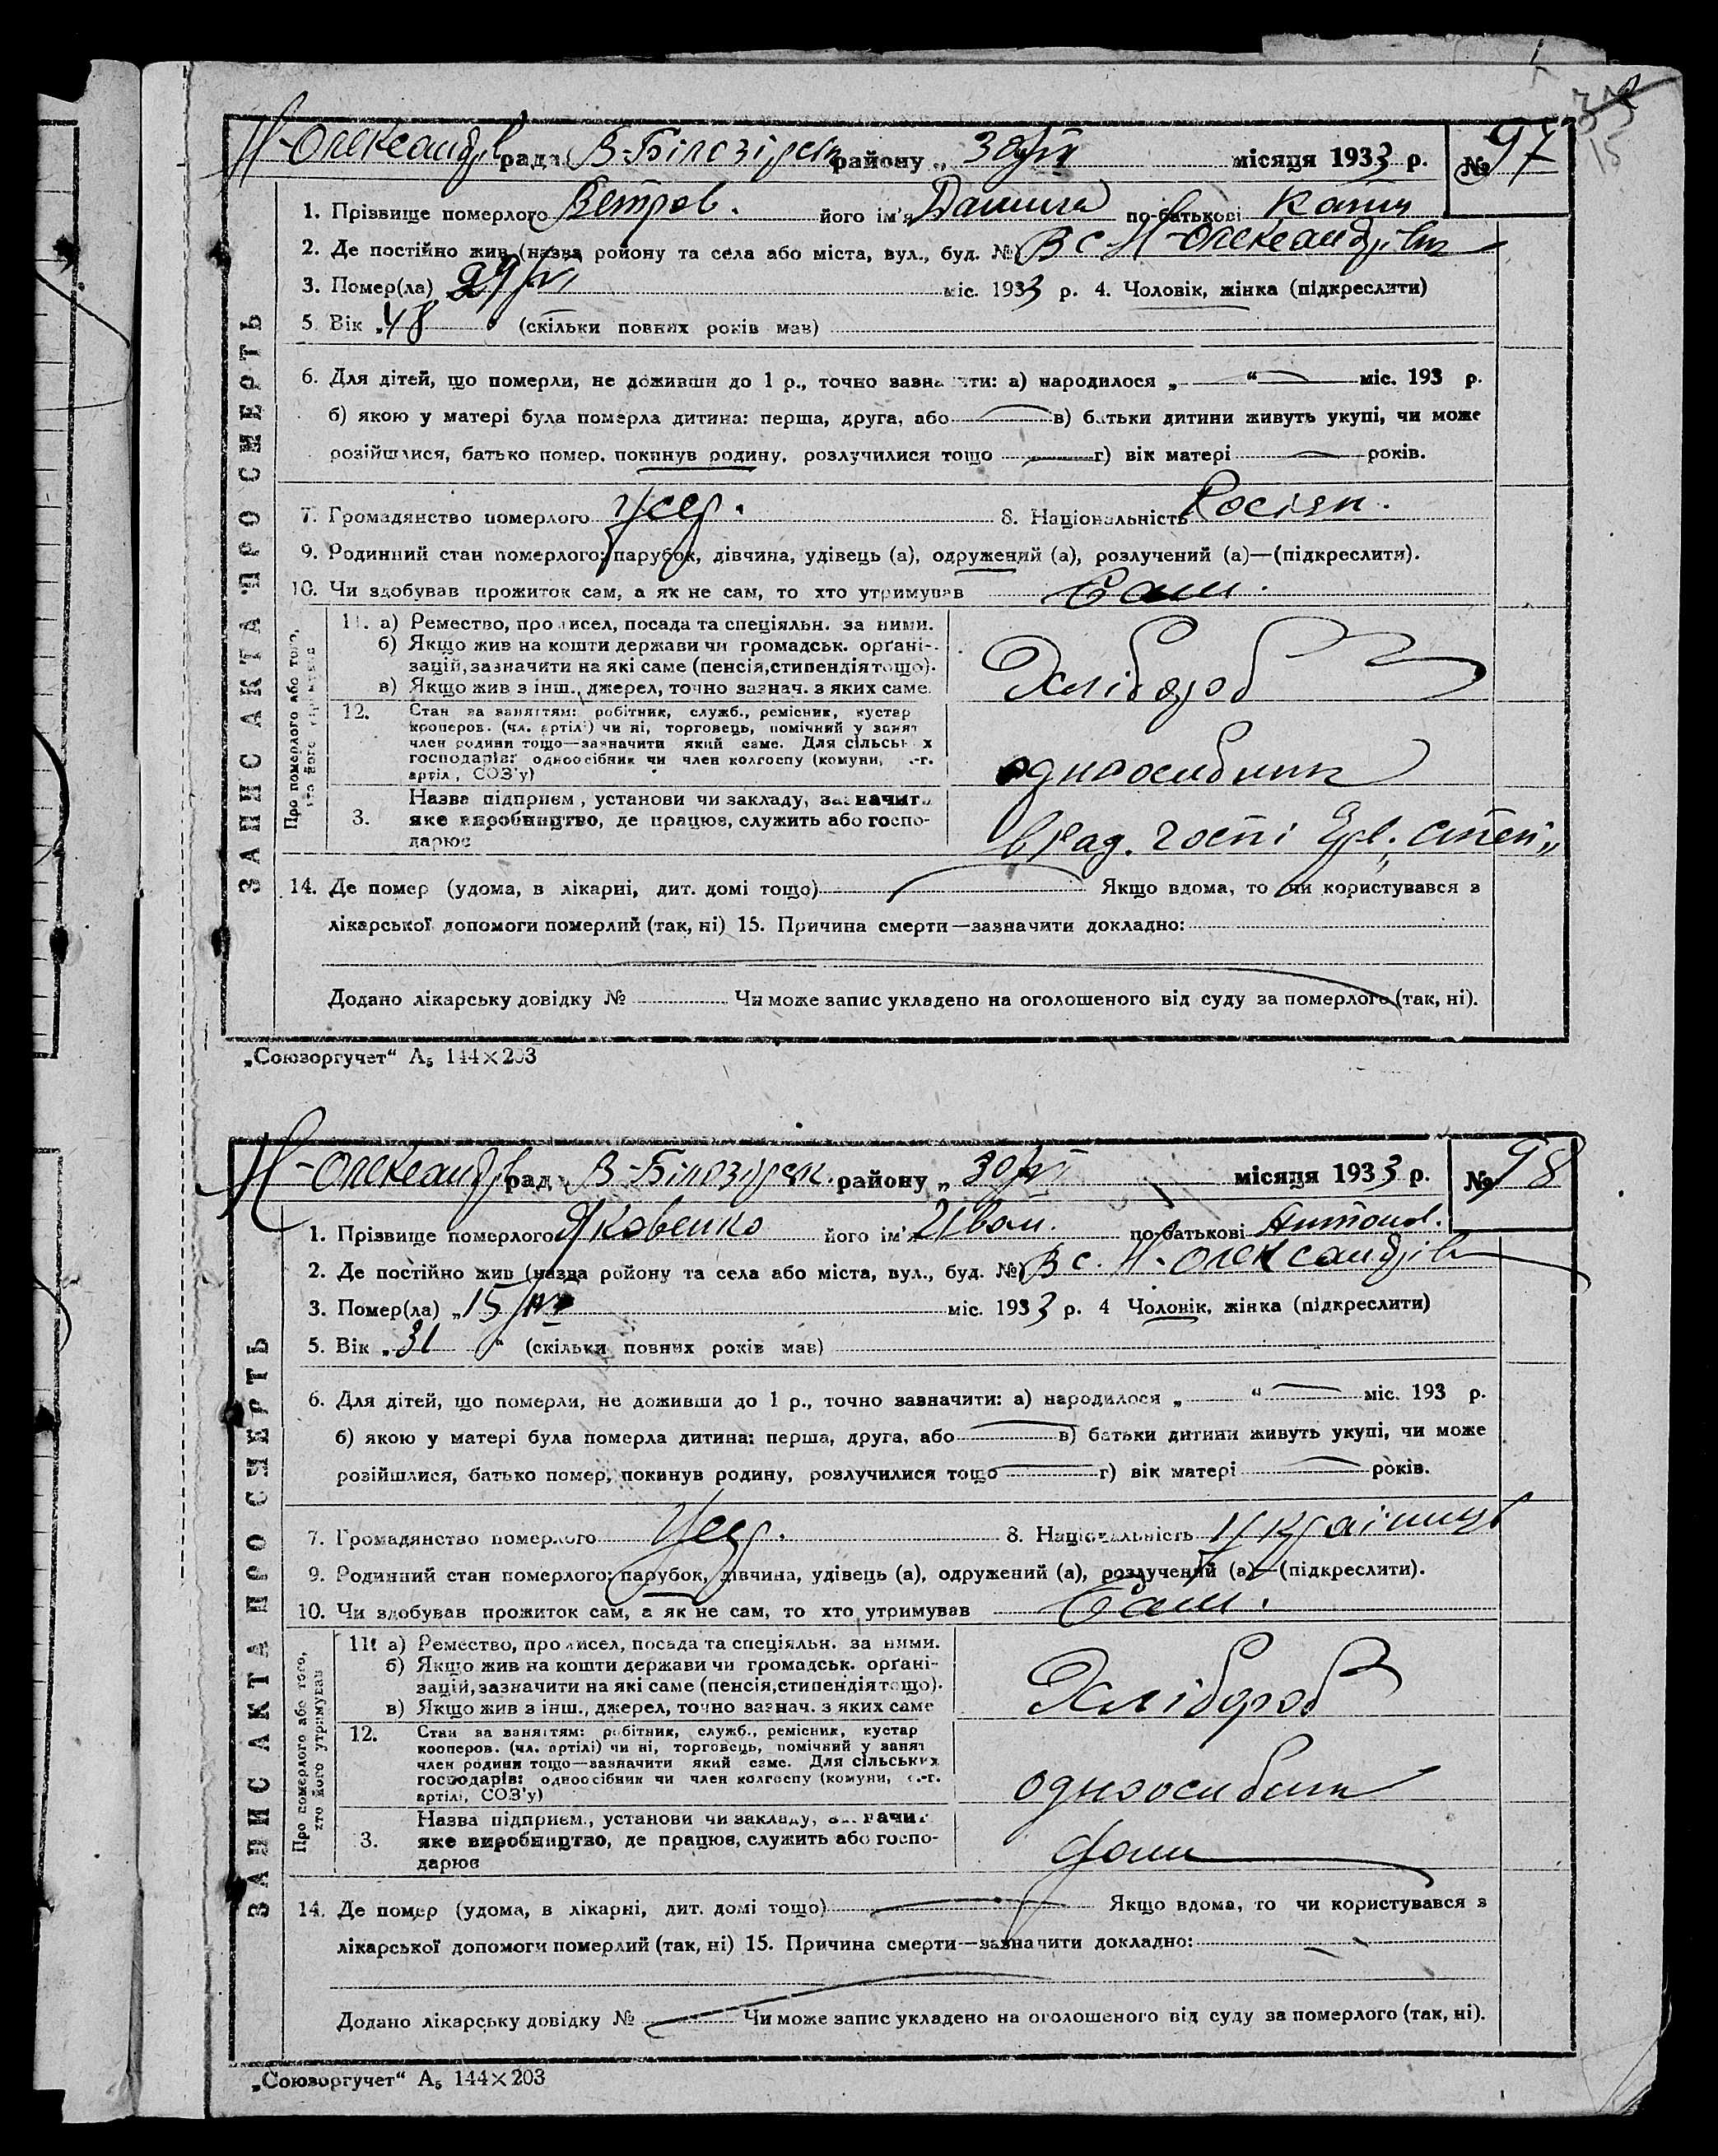 Н-Олександрів рада В-Білозірськ району „ 30/VI місяця 1933 р. № 97
1. Прізвище померлого Ветров. його ім'я Данило по-батькові
2. Де постійно жив (назва ройону та села або міста, вул., буд. №) В с. Н-Олександрівц
3. Помер(ла) „29/VI міс. 1933 р. 4. Чоловік, жінка (підкреслити)
5. Вік „48 (скільки повних років мав)
6. Для дітей, що померли, не доживши до 1 р., точно зазначити: а) народилося „ “ міс. 193 р.
б) якою у матері була померла дитина: перша, друга, або в) батьки дитини живуть укупі, чи може
розійшлися, батько помер, покинув родину, розлучилися тощо г) вік матері років.
7. Громадянство померлого усср. 8. Національність Росіян.
9. Родинний стан померлого: парубок, дівчина, удівець (а), одружений (а), розлучений (а)—(підкреслити).
10. Чи здобував прожиток сам, а як не сам, то хто утримував Сам.
11. а) Ремество, промисел, посада та спеціяльн. за ними.
б) Якщо жив на кошти держави чи громадськ. орґані-
зацій, зазначити на які саме (пенсія, стипендія тощо).
в) Якщо жив з інш., джерел, точно зазнач. з яких саме.
Хлібороб
12. Стан за заняттям: робітник, служб., ремісник, кустар
коопеpов. (чл. артілі) чи ні, торговець, помічний у занят
член родини тощо—зазначити який саме. Для сільських
господарів: одноосібник чи член колгоспу (комуни, с.-г.
артілі, СОЗ'у)
одноосибник
3. Назва підприєм., установи чи закладу, зазначити
яке виробництво, де працює, служить або госпо-
дарює
в Рад. госпі „степ„
14. Де помер (удома, в лікарні, дит. домі тощо) Якщо вдома, то чи користувався з
лікарської допомоги померлий (так, ні) 15. Причина смерти—зазначити докладно:
Додано лікарську довідку № Чи може запис укладено на оголошеного від суду за померлого (так, ні).
ЗАПИС АКТА ПРО СМЕРТЬ
Про померлого або того,
хто його утримував
„Союзоргучет“ А5 144×203
Н-Олександрів рад В-Білозірськ. району „ 30/VI місяця 1933 р. № 98
1. Прізвище померлого Яковенко його ім'я Иван. по-батькові Антонов.
2. Де постійно жив (назва ройону та села або міста, вул., буд. №) В с. Н-Олександрів
3. Помер(ла) „15/VI міс. 1933 р. 4 Чоловік, жінка (підкреслити)
5. Вік „31 “ (скільки повних років мав)
6. Для дітей, що померли, не доживши до 1 р., точно зазначити: а) народилося „ “ міс. 193 р.
б) якою у матері була померла дитина: перша, друга, або в) батьки дитини живуть укупі, чи може
розійшлися, батько помер, покинув родину, розлучилися тощо г) вік матері років.
7. Громадянство померлого усср. 8. Національність Украіниць
9. Родинний стан померлого: парубок, дівчина, удівець (а), одружений (а), розлучений (а)—(підкреслити).
10. Чи здобував прожиток сам, а як не сам, то хто утримував Сам.
11. а) Ремество, промисел, посада та спеціяльн. за ними.
б) Якщо жив на кошти держави чи громадськ. орґані-
зацій, зазначити на які саме (пенсія, стипендія тощо).
в) Якщо жив з інш., джерел, точно зазнач. з яких саме
Хлібороб
12. Стан за заняттям: робітник, служб., ремісник, кустар
кооперов. (чл. артілі) чи ні, торговець, помічний у занят
член родини тощо—зазначити який саме. Для сільських
господарів: одноосібник чи член колгоспу (комуни, с.-г.
артілі, СОЗ'у)
одноосибник
3. Назва підприєм., установи чи закладу, зазначит
яке виробництво, де працює, служить або госпо-
дарює
14. Де помер (удома, в лікарні, дит. домі тощо) Якщо вдома, то чи користувався з
лікарської допомоги померлий (так, ні) 15. Причина смерти—зазначити докладно:
Додано лікарську довідку № Чи може запис укладено на оголошеного від суду за померлого (так, ні).
ЗАПИС АКТА ПРО СМЕРТЬ
Про померлого або того,
хто його утримував
„Союзоргучет“ А5 144×203